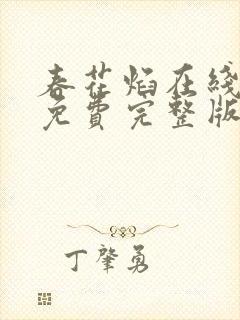 春花焰在线
免费完整版
丁肇勇